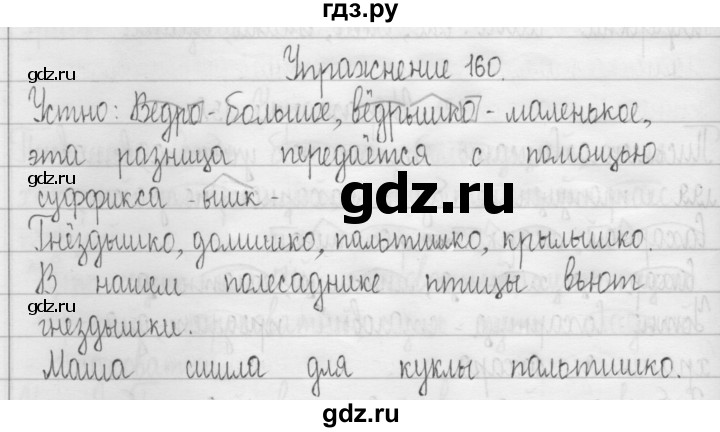 гдз.ру
Упражнение 160.
gdz.ru
Устно: Ведро - большое, вёдрышко - маленькое,
эта разница передаётся с помощью
gdz.ru
суффикса -ышк-
gdz.ru
Гнёздышко, домишко, пальтишко, крылышко.
В нашем полесаднике птицы вьют
gdz.ru
гнездышки.
gdz.ru
Маша сшила для куклы пальтишко.
gdz.ru